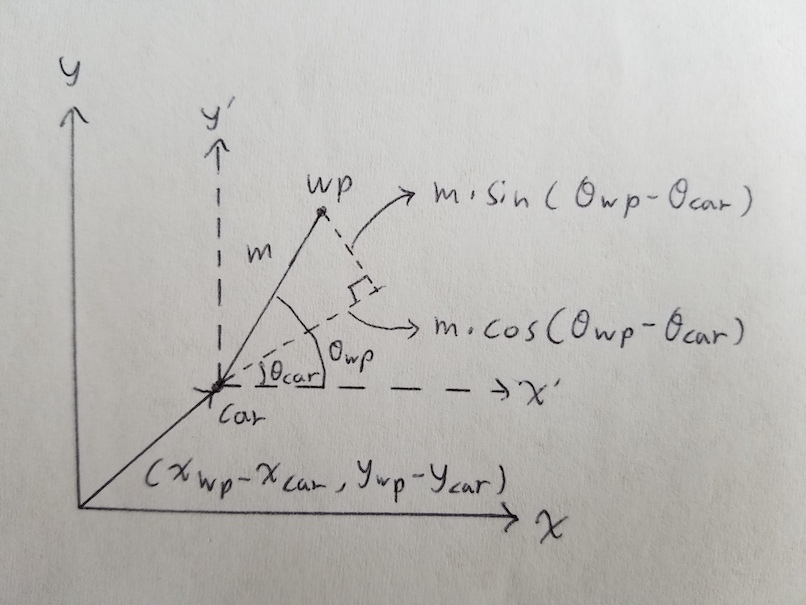 y
y'
wp
m·sin(θwp-θcar)
m
m·cos(θwp-θcar)
θwp
θcar
x'
car
(xwp-xcar, ywp-ycar)
x